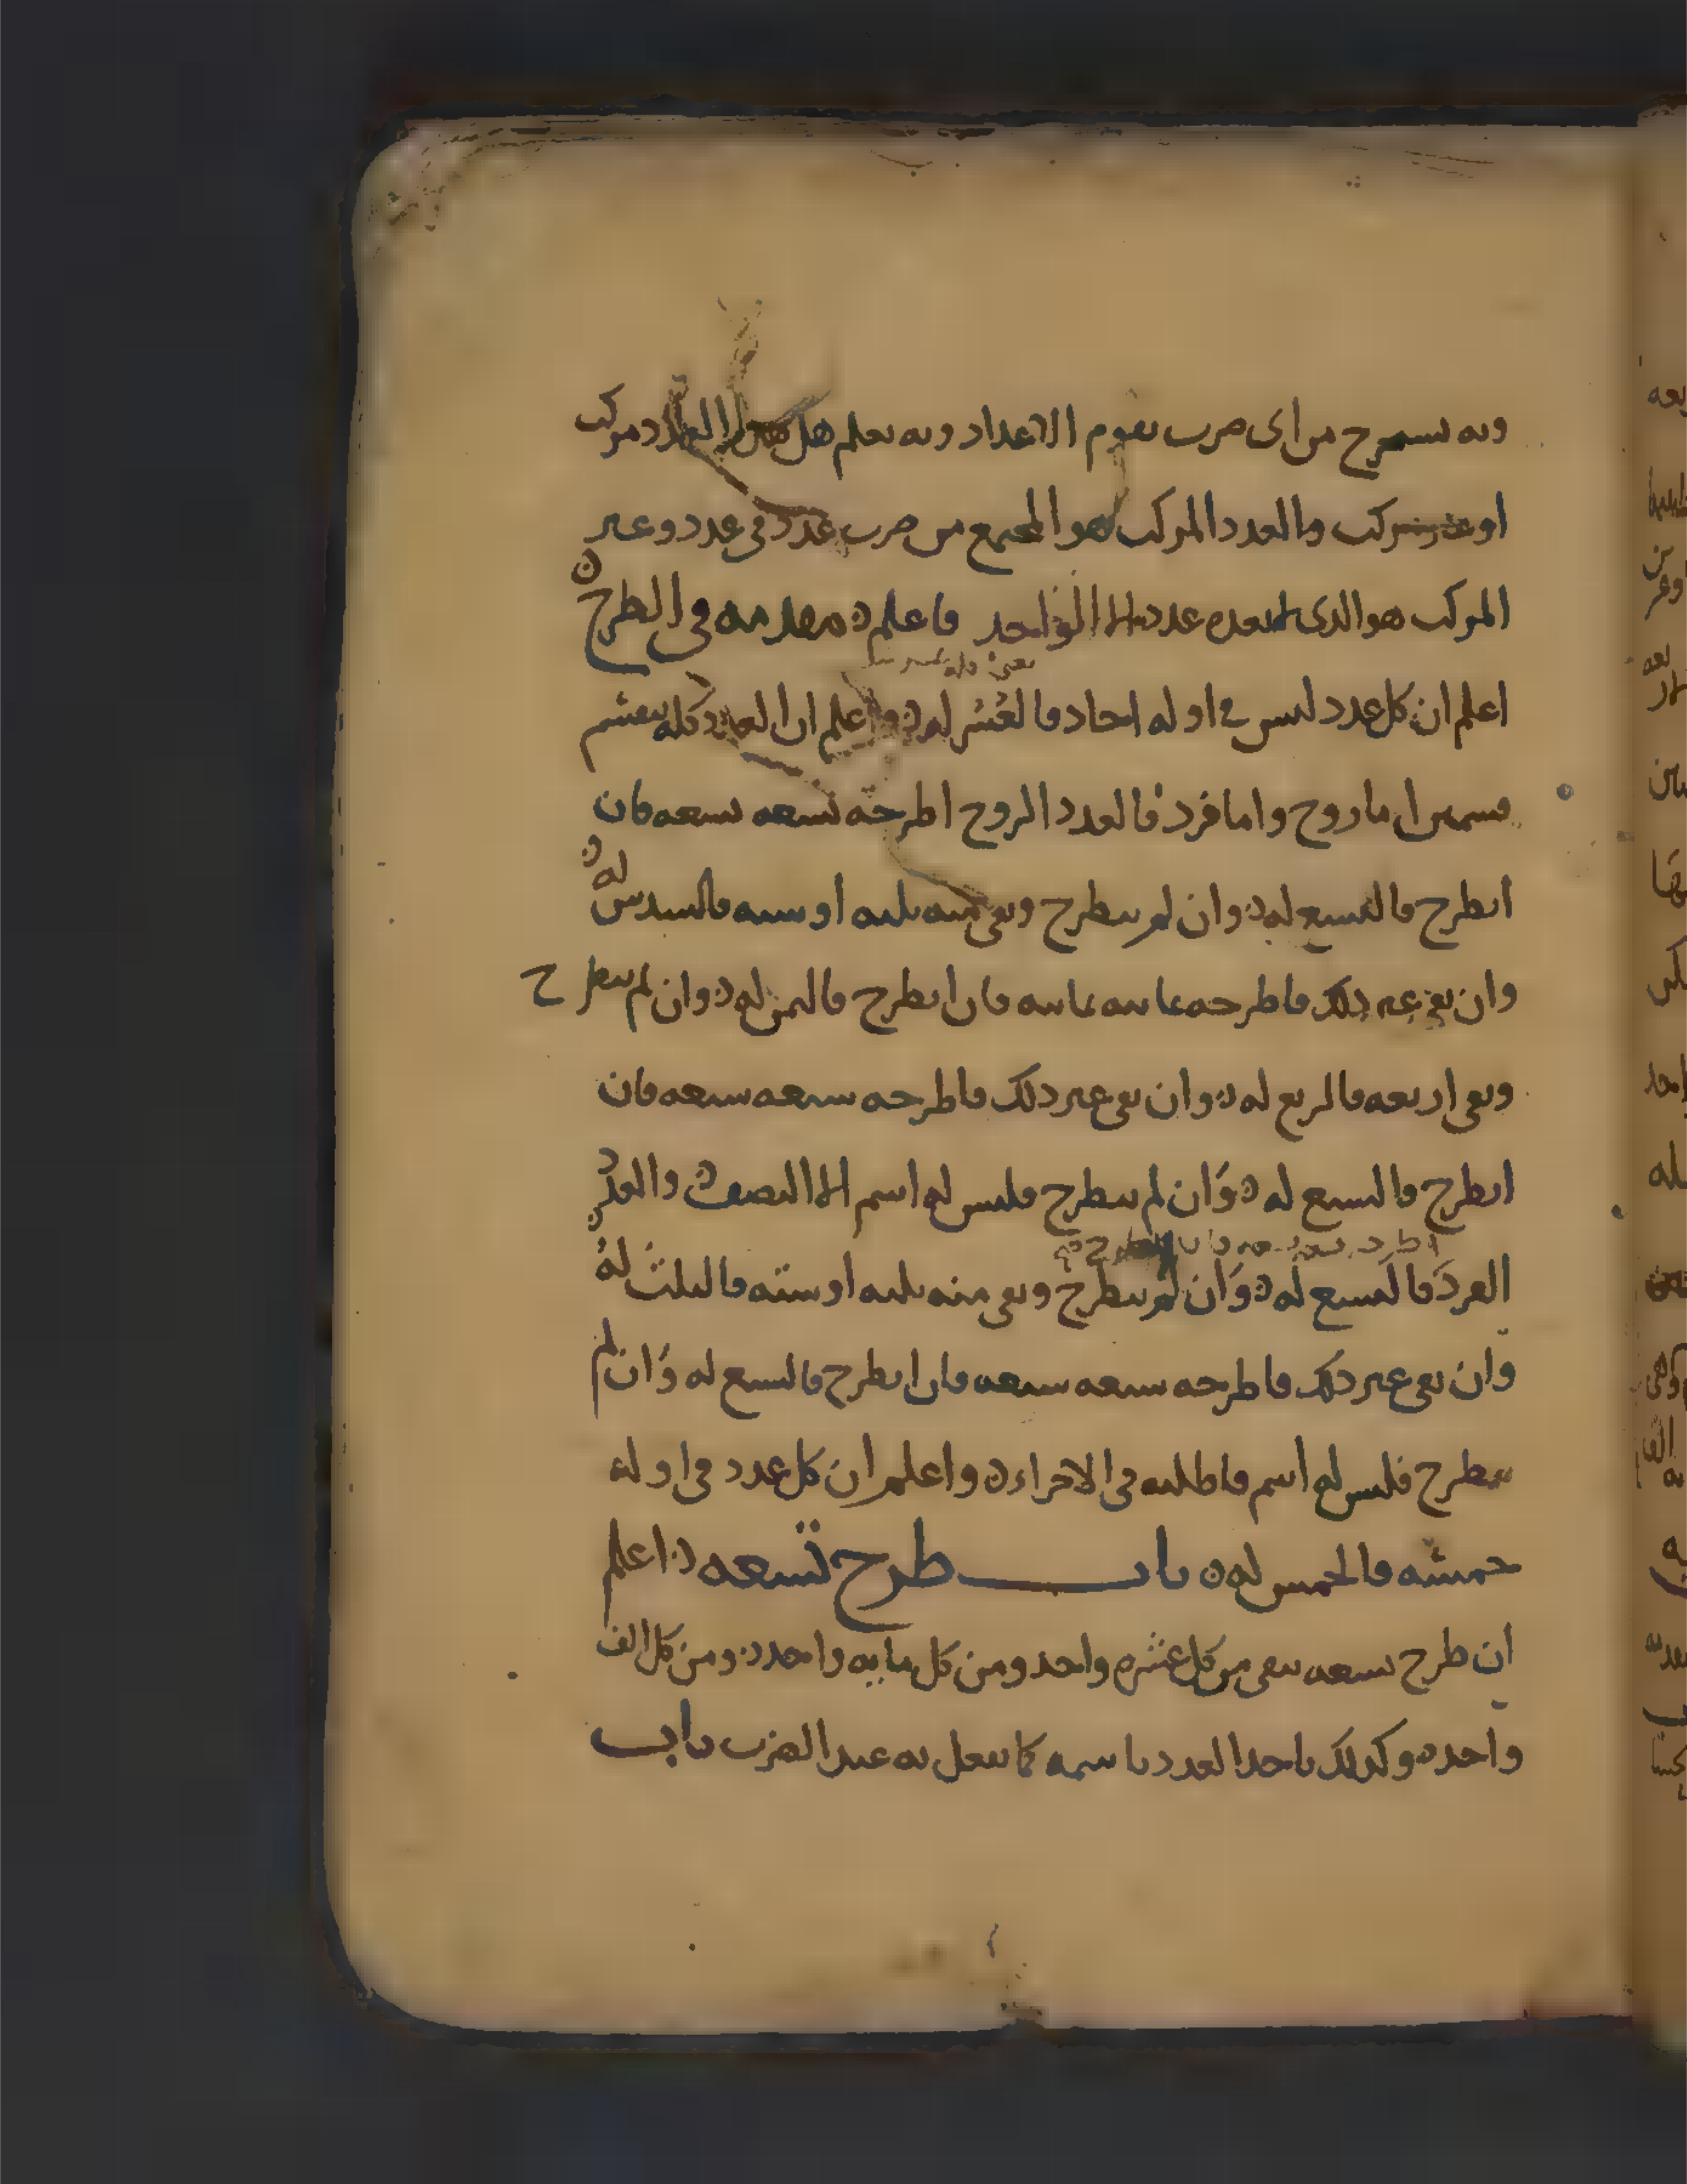 وبه يستخرج من اى ضرب يقوم الاعداد وبه يعلم هل هذا العدد مركب
او غير مركب والعدد المركب هو المجتمع من ضرب عدد في عدد وغير
المركب هو الذى لا يعده عدد الا الواحد فاعلم مقدمه في الطرح
اعلم ان كل عدد ليس في اوله احاد فالعُشر له واعلم ان العدد كله ينقسم
قسمين اما زوج واما فرد فالعدد الزوج اطرحه تسعه تسعه فان
انطرح فالتسع له وان لم ينطرح وبقي منه ثلثه او سته فالسدس له
وان بقي غير ذلك فاطرحه ثمانيه ثمانيه فان انطرح فالثمن له وان لم ينطرح
وبقي اربعه فالربع له وان بقي غير ذلك فاطرحه سبعه سبعه فان
انطرح فالسبع له وان لم ينطرح فليس له اسم الا النصف والعدد
الفرد فالتسع له وان لم ينطرح وبقي منه ثلثه او سته فالثلث له
وان بقي غير ذلك فاطرحه سبعه سبعه فان انطرح فالسبع له وان لم
ينطرح فليس له اسم فاطلبه في الاجزاء واعلم ان كل عدد في اوله
خمسه فالخمس له باب طرح تسعه اعلم
ان طرح تسعه يبقى من كل عشره واحد ومن كل مايه واحد ومن كل الف
واحد وكذلك ياخذ العدد باسمه كما يفعل به عند الضرب باب